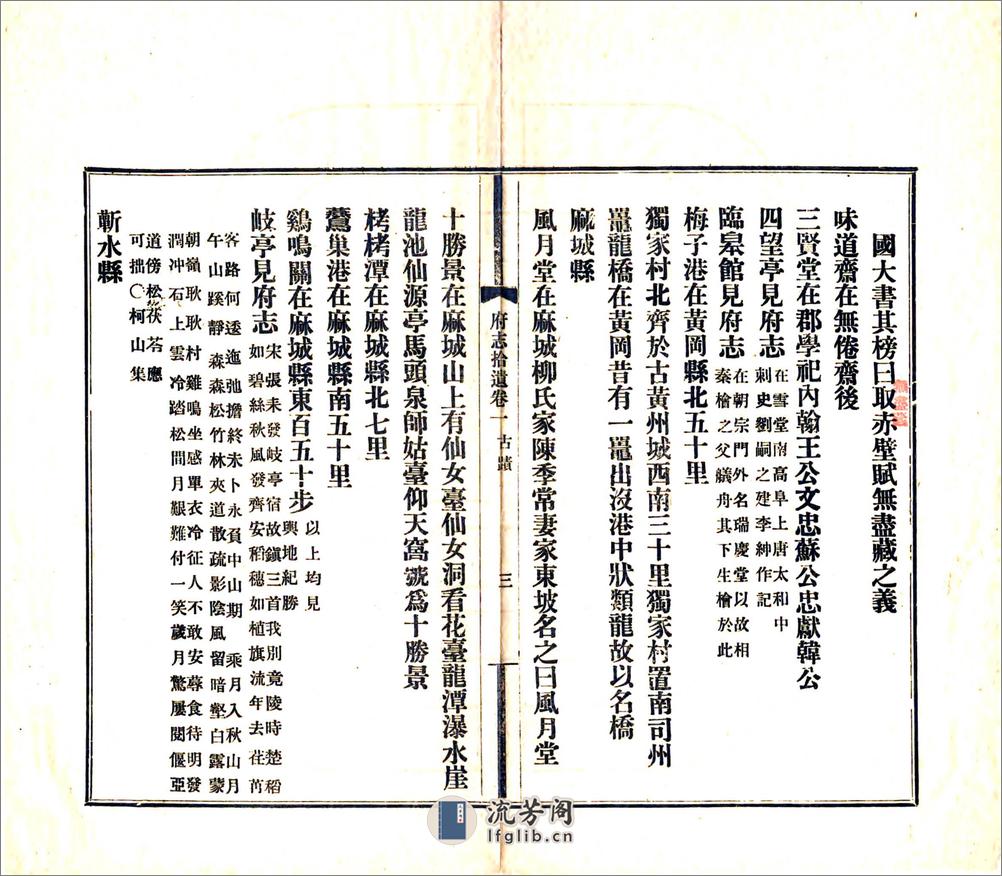 國大書其榜曰取赤壁賦無盡藏之義
味道齋在無倦齋後
三賢堂在郡學祀內翰王公文忠蘇公忠獻韓公
四望亭見府志
在雪堂南高阜上唐太和中
刺史劉嗣之建李紳作記
臨臯館見府志
在朝宗門外名瑞慶堂以故相
秦檜之父艤舟其下生檜於此
梅子港在黃岡縣北五十里
獨家村北齊於古黃州城西南三十里獨家村置南司州
鼉龍橋在黃岡昔有一鼉出沒港中狀類龍故以名橋
麻城縣
風月堂在麻城柳氏家陳季常妻家東坡名之曰風月堂
府志拾遺卷一 古蹟
三
十勝景在麻城山上有仙女臺仙女洞看花臺龍潭瀑水崖
龍池仙源亭馬頭泉師姑臺仰天窩號爲十勝景
栲栳潭在麻城縣北七里
鷟巢港在麻城縣南五十里
鷄鳴關在麻城縣東百五十步
以上均見
輿地紀勝
岐亭見府志
宋張耒發岐亭宿故鎮三首我別竟陵時楚稻
如碧絲秋風發齊安稻穗如植旗流年去荏苒
客路何逶迤弛擔終未卜永負中山期 乘月入秋山月
午山蹊靜森森松竹林夾道散疏影陰風留暗壑白露蒙
朝嶺耿耿村雞鳴坐感單衣冷征人不敢安蓐食待明發
澗冲石上雲冷踏松間月艱難付一笑歲月驚屢閱偃亞
道傍松茯苓應
可拙〇柯山集
蘄水縣
流芳阁
lfglib.cn